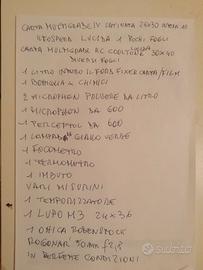 CARTA MULTIGRADE IV SATINATA 24X30
ILFOSPEED LUCIDA 1 FOGLI
CARTA MULTIGRADE RC COOLTONE LUCIDA 30X40
FOGLI
1 LITRO ILFORD FIXER CARTA/FILM
1 BOTTIGLIA CHIMICI
2 MICROPHEN POLVERE DA LITRO
1 MICROPHEN DA 600
1 PERCEPTOL DA 600
1 LAMPADA GIALLO VERDE
1 FOCOMETRO
1 TERMOMETRO
1 IMBUTO
VARI MISURINI
1 TEMPORIZZATORE
1 LUPO M3 24X36
1 OTTICA RODENSTOCK
ROGONAR 50MM F2,8
IN PERFETTE CONDIZIONI
SUBITO